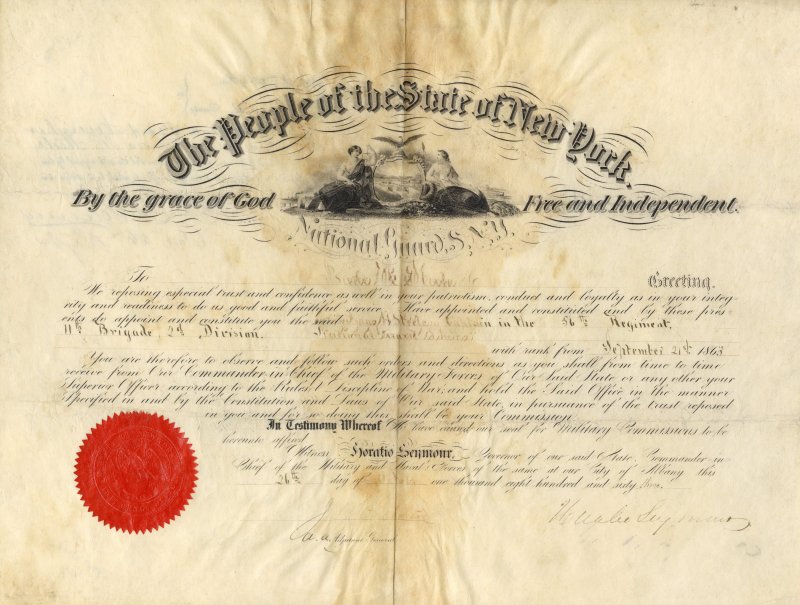 The People of the State of New York.
By the grace of God Free and Independent.
National Guard, S.N.Y.
To
Greeting.
We reposing especial trust and confidence as well in your patriotism, conduct and loyalty as in your integ-
rity and readiness to do us good and faithful service Have appointed and constituted and by these pres-
ents do appoint and constitute you the said Captain in the 56th Regiment,
11th Brigade 2d Division.
with rank from September 21st 1863
You are therefore to observe and follow such orders and directions as you shall from time to time
receive from Our Commander in Chief of the Military Forces of Our Said State or any other your
Superior Officer according to the Rules & Discipline of War, and hold the Said Office in the manner
Specified in and by the Constitution and Laws of Our said State, in pursuance of the trust reposed
in you and for so doing this shall be your Commission.
In Testimony Whereof We have caused our seal for Military Commissions to be
hereunto affixed.
Witness Horatio Seymour, Governor of our said State, Commander in
Chief of the Military and Naval Forces of the same at our City of Albany this
26th day of one thousand eight hundred and sixty
Horatio Seymour
Adjutant General